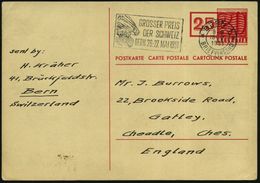 GROSSER PREIS
DER SCHWEIZ
25
POSTKARTE CARTE POSTALE CARTOLINA POSTALE
sent by:
H. Kräher
41, Brückfeldstr.
Bern
Switzerland
Mr. J. Burrows,
22, Brookside Road,
Gatley,
Cheadle, Ches.
England